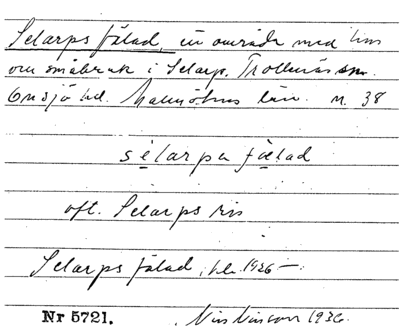 Selarps fälad, en område med hus
om småbruk i Selarp. Trollenäs sn.
Onsjö hd. Malmöhus län. n. 38
sélarpa fælad
oft. Selarps
Selarps fälad, 1926 –
Nr 5721. Nils Nilsson 1936